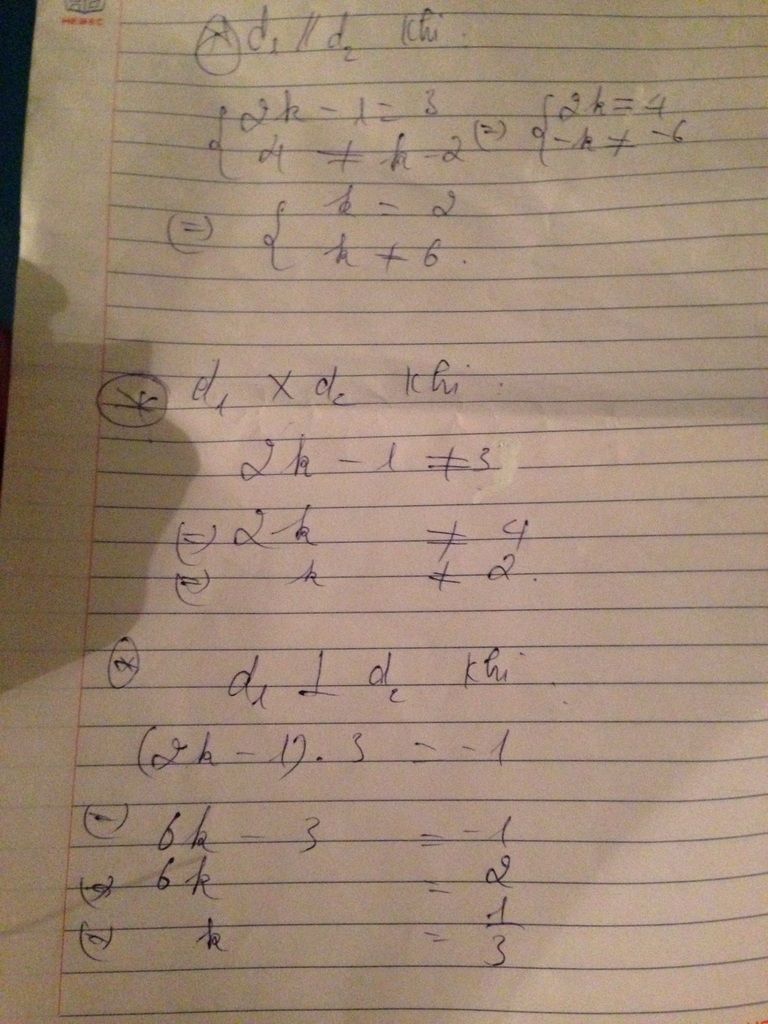 d₁ // d₂ khi :
{ 2k - 1 = 3 (=) { 2k = 4
{ 4 ≠ k - 2 { -k ≠ -6
(=) { k = 2
{ k ≠ 6 .
* d₁ X d₂ khi :
2k - 1 ≠ 3
(=) 2k ≠ 4
(=) k ≠ 2 .
* d₁ ⊥ d₂ khi :
(2k - 1) . 3 = -1
(=) 6k - 3 = -1
(=) 6k = 2
(=) k = 1/3